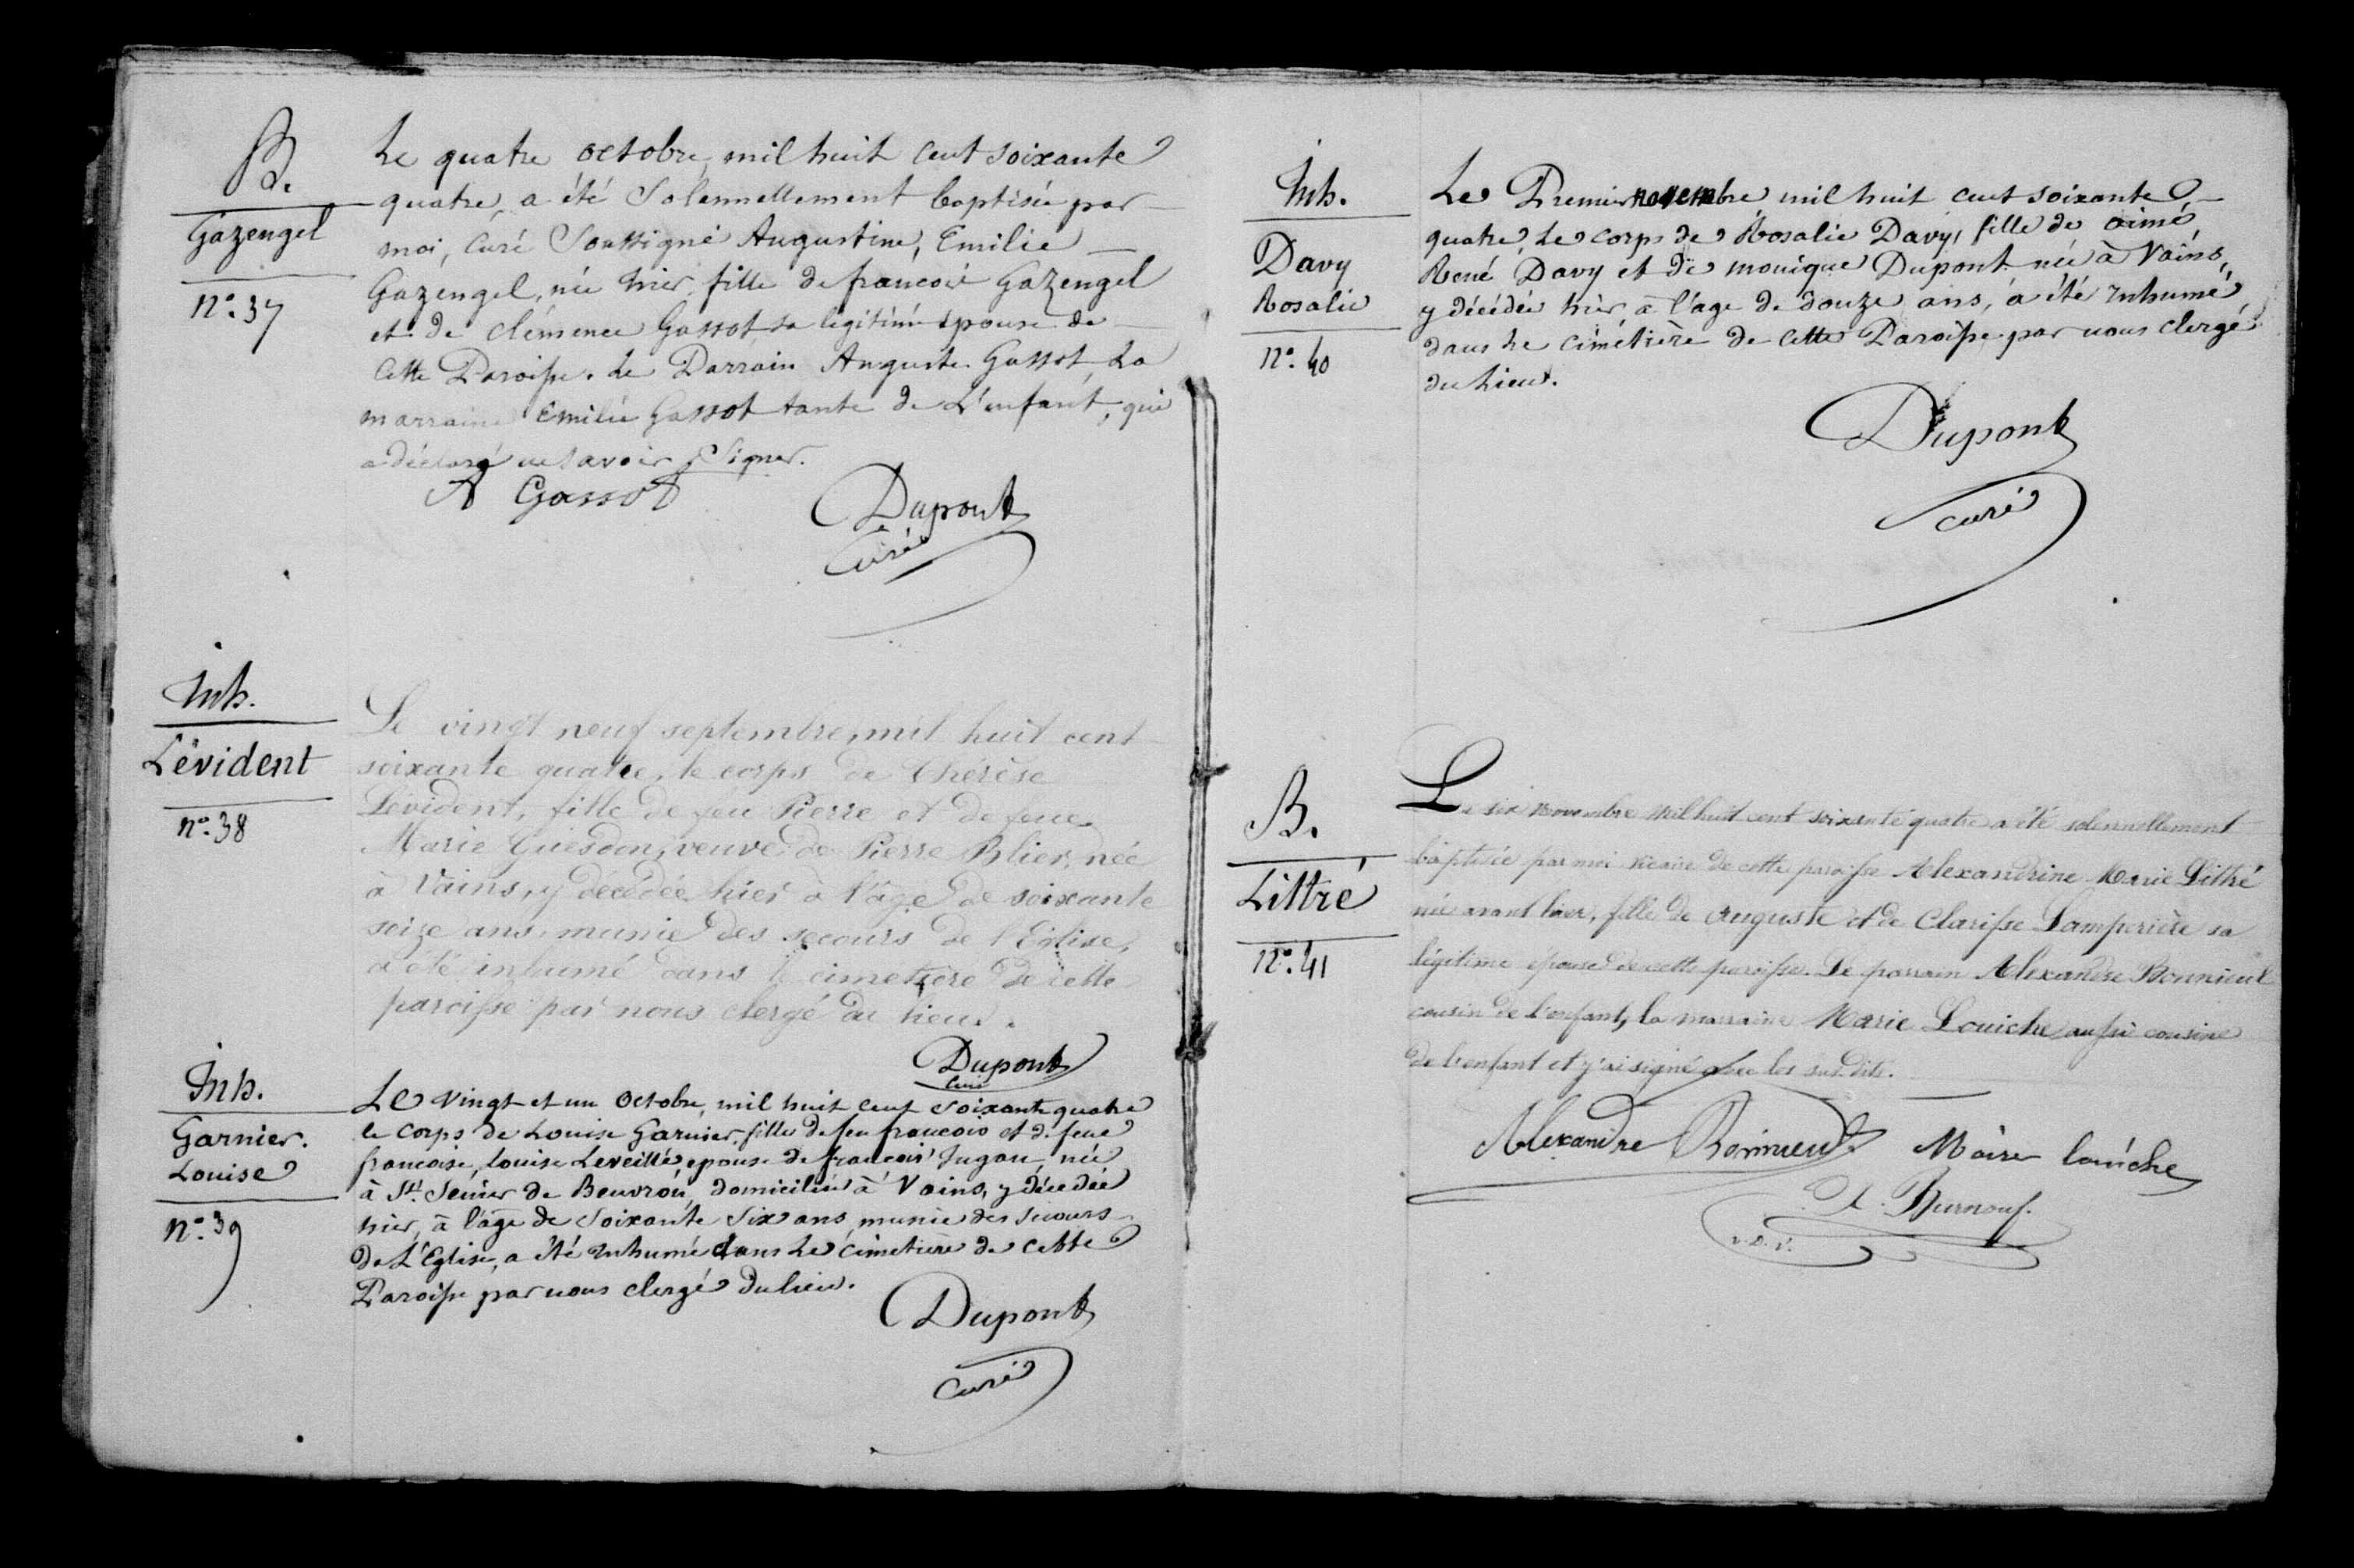 B.
Gazengel
n°. 37
Le quatre octobre, mil huit cent soixante
quatre, a été Solennellement baptisée par
moi, Curé Soussigné Augustine, Emilie
Gazengel, née hier, fille de francois Gazengel
et de clémence Gassot sa légitime épouse de
Cette Paroisse. Le Parrain Auguste Gassot La
marraine Emilie Gassot tante de L'enfant, qui
a déclaré ne savoir Signer.
A Gassot
Dupont
Curé
Inh.
Lévident
n°. 38
Le vingt neuf septembre, mil huit cent
soixante quatre, le corps de Thérèse
Lévident, fille de feu Pierre et de feue
Marie Guesdon, veuve de Pierre Blier, née
à Vains, y décédée hier à l'âge de soixante
seize ans, munie des secours de l'Eglise,
a été inhumé dans le cimetière de cette
paroisse par nous clergé du lieu.
Dupont
Curé
Inh.
Garnier.
Louise
n°. 39
Le vingt et un Octobre, mil huit cent soixante quatre
le corps de Louise Garnier, fille de feu francois et de feue
francoise, Louise Leveillé, epouse de francois Jugan, née
à St. Senier de Beuvron, domiciliée à Vains, y décédée
hier, à l'âge de soixante six ans munie des secours
de L'Eglise, a été inhumé dans le cimetière de cette
Paroisse par nous clergé du lieu.
Dupont
Curé
Inh.
Davy
Rosalie
n°. 40
Le Premier novembre mil huit cent soixante
quatre, Le corps de Rosalie Davy, fille de aimé,
René Davy et de monique Dupont née à Vains,
y décédée hier, à l'age de douze ans, a été inhumé
dans le cimétière de cette Paroisse par nous clergé
du lieu.
Dupont
curé
B.
Littré
n°. 41
Le six novembre mil huit cent soixante quatre a été solennellement
baptisée par moi vicaire de cette paroisse Alexandrine Marie Littré
née avant hier, fille de Auguste et de Clarisse Lamperière sa
légitime épouse de cette paroisse. Le parrain Alexandre Bonnieul
cousin de l'enfant, la marraine Marie Louiche aussi cousine
de l'enfant et j'ai signé avec les sus dits.
Alexandre Louiche
v. D. V.